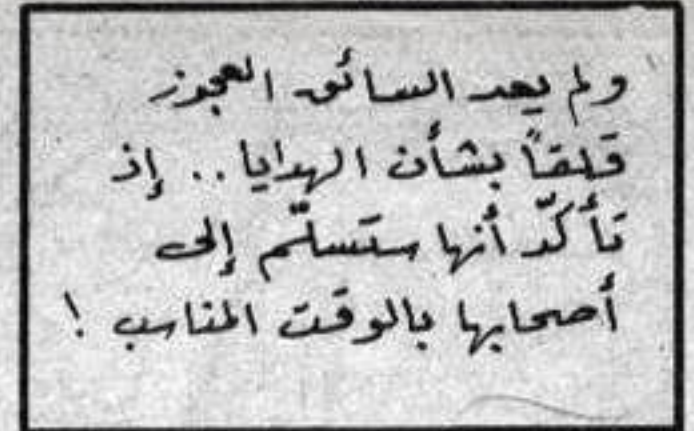 ولم يعد السائق العجوز
قلقاً بشأن الهدايا .. إذ
تأكّد أنها ستسلّم إلى
أصحابها بالوقت المناسب !